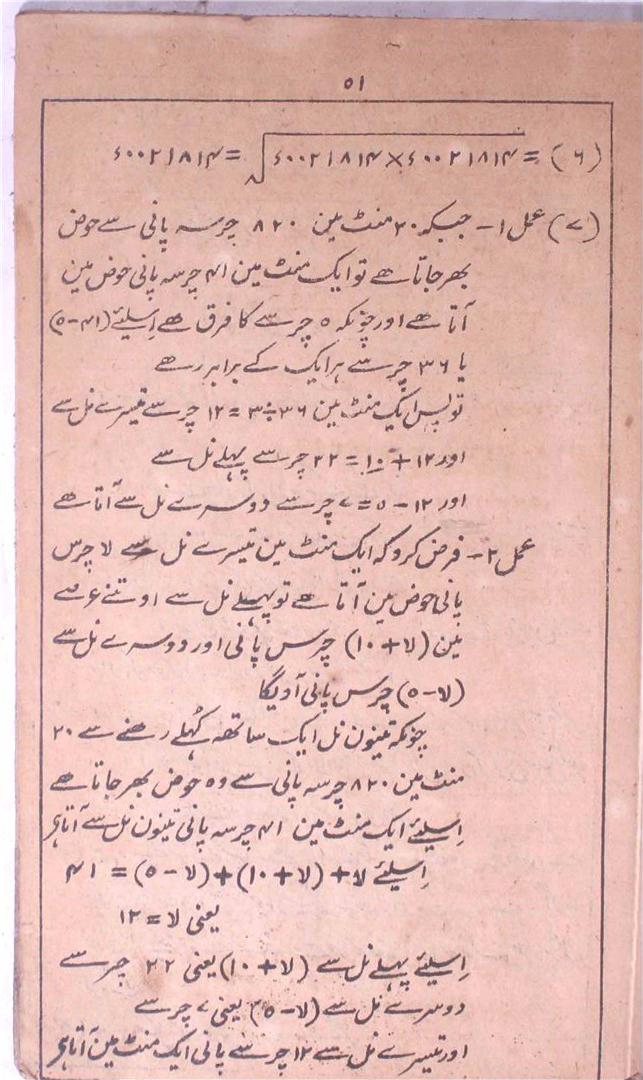 ۵۱
(۶) = √۶۰۰۲۱۸۱۴×۶۰۰۲۱۸۱۴ = ۶۰۰۲۱۸۱۴
(۷) عمل ۱- جبکہ ۲۰ منٹ مین ۸۲۰ چرسہ پانی سے حوض
بھر جاتا ھے تو ایک منٹ مین ۴۱ چرسہ پانی حوض مین
آتا ھے اور چونکہ ۵ چرسے کا فرق ھے اِسلیئے (۴۱-۵)
یا ۳۶ چرسے ہر ایک کے برابر رھے
تو پس ایک منٹ مین ۳۶÷۳=۱۲ چرسے تیسرے نل سے
اور ۱۲+۱۰=۲۲ چرسے پہلے نل سے
اور ۱۲-۵=۷ چرسے دوسرے نل سے آتا ھے
عمل ۲- فرض کرو کہ ایک منٹ مین تیسرے نل سے لا چرس
پانی حوض مین آتا ھے تو پہلے نل سے اوتنے عرصے
مین (لا+۱۰) چرس پانی اور دوسرے نل سے
(لا-۵) چرس پانی آویگا
چونکہ تینون نل ایک ساتھہ کُہلے رھنے سے ۲۰
منٹ مین ۸۲۰ چرسہ پانی سے وہ حوض بھر جاتا ھے
اِسلیئے ایک منٹ مین ۴۱ چرسہ پانی تینون نل سے آتا ہی
اِسلیئے لا+(لا+۱۰)+(لا-۵)=۴۱
یعنی لا=۱۲
اِسلیئے پہلے نل سے (لا+۱۰) یعنی ۲۲ چرسے
دوسرے نل سے (لا-۵) یعنی ۷ چرسے
اور تیسرے نل سے ۱۲ چرسے پانی ایک منٹ مین آتا ہی